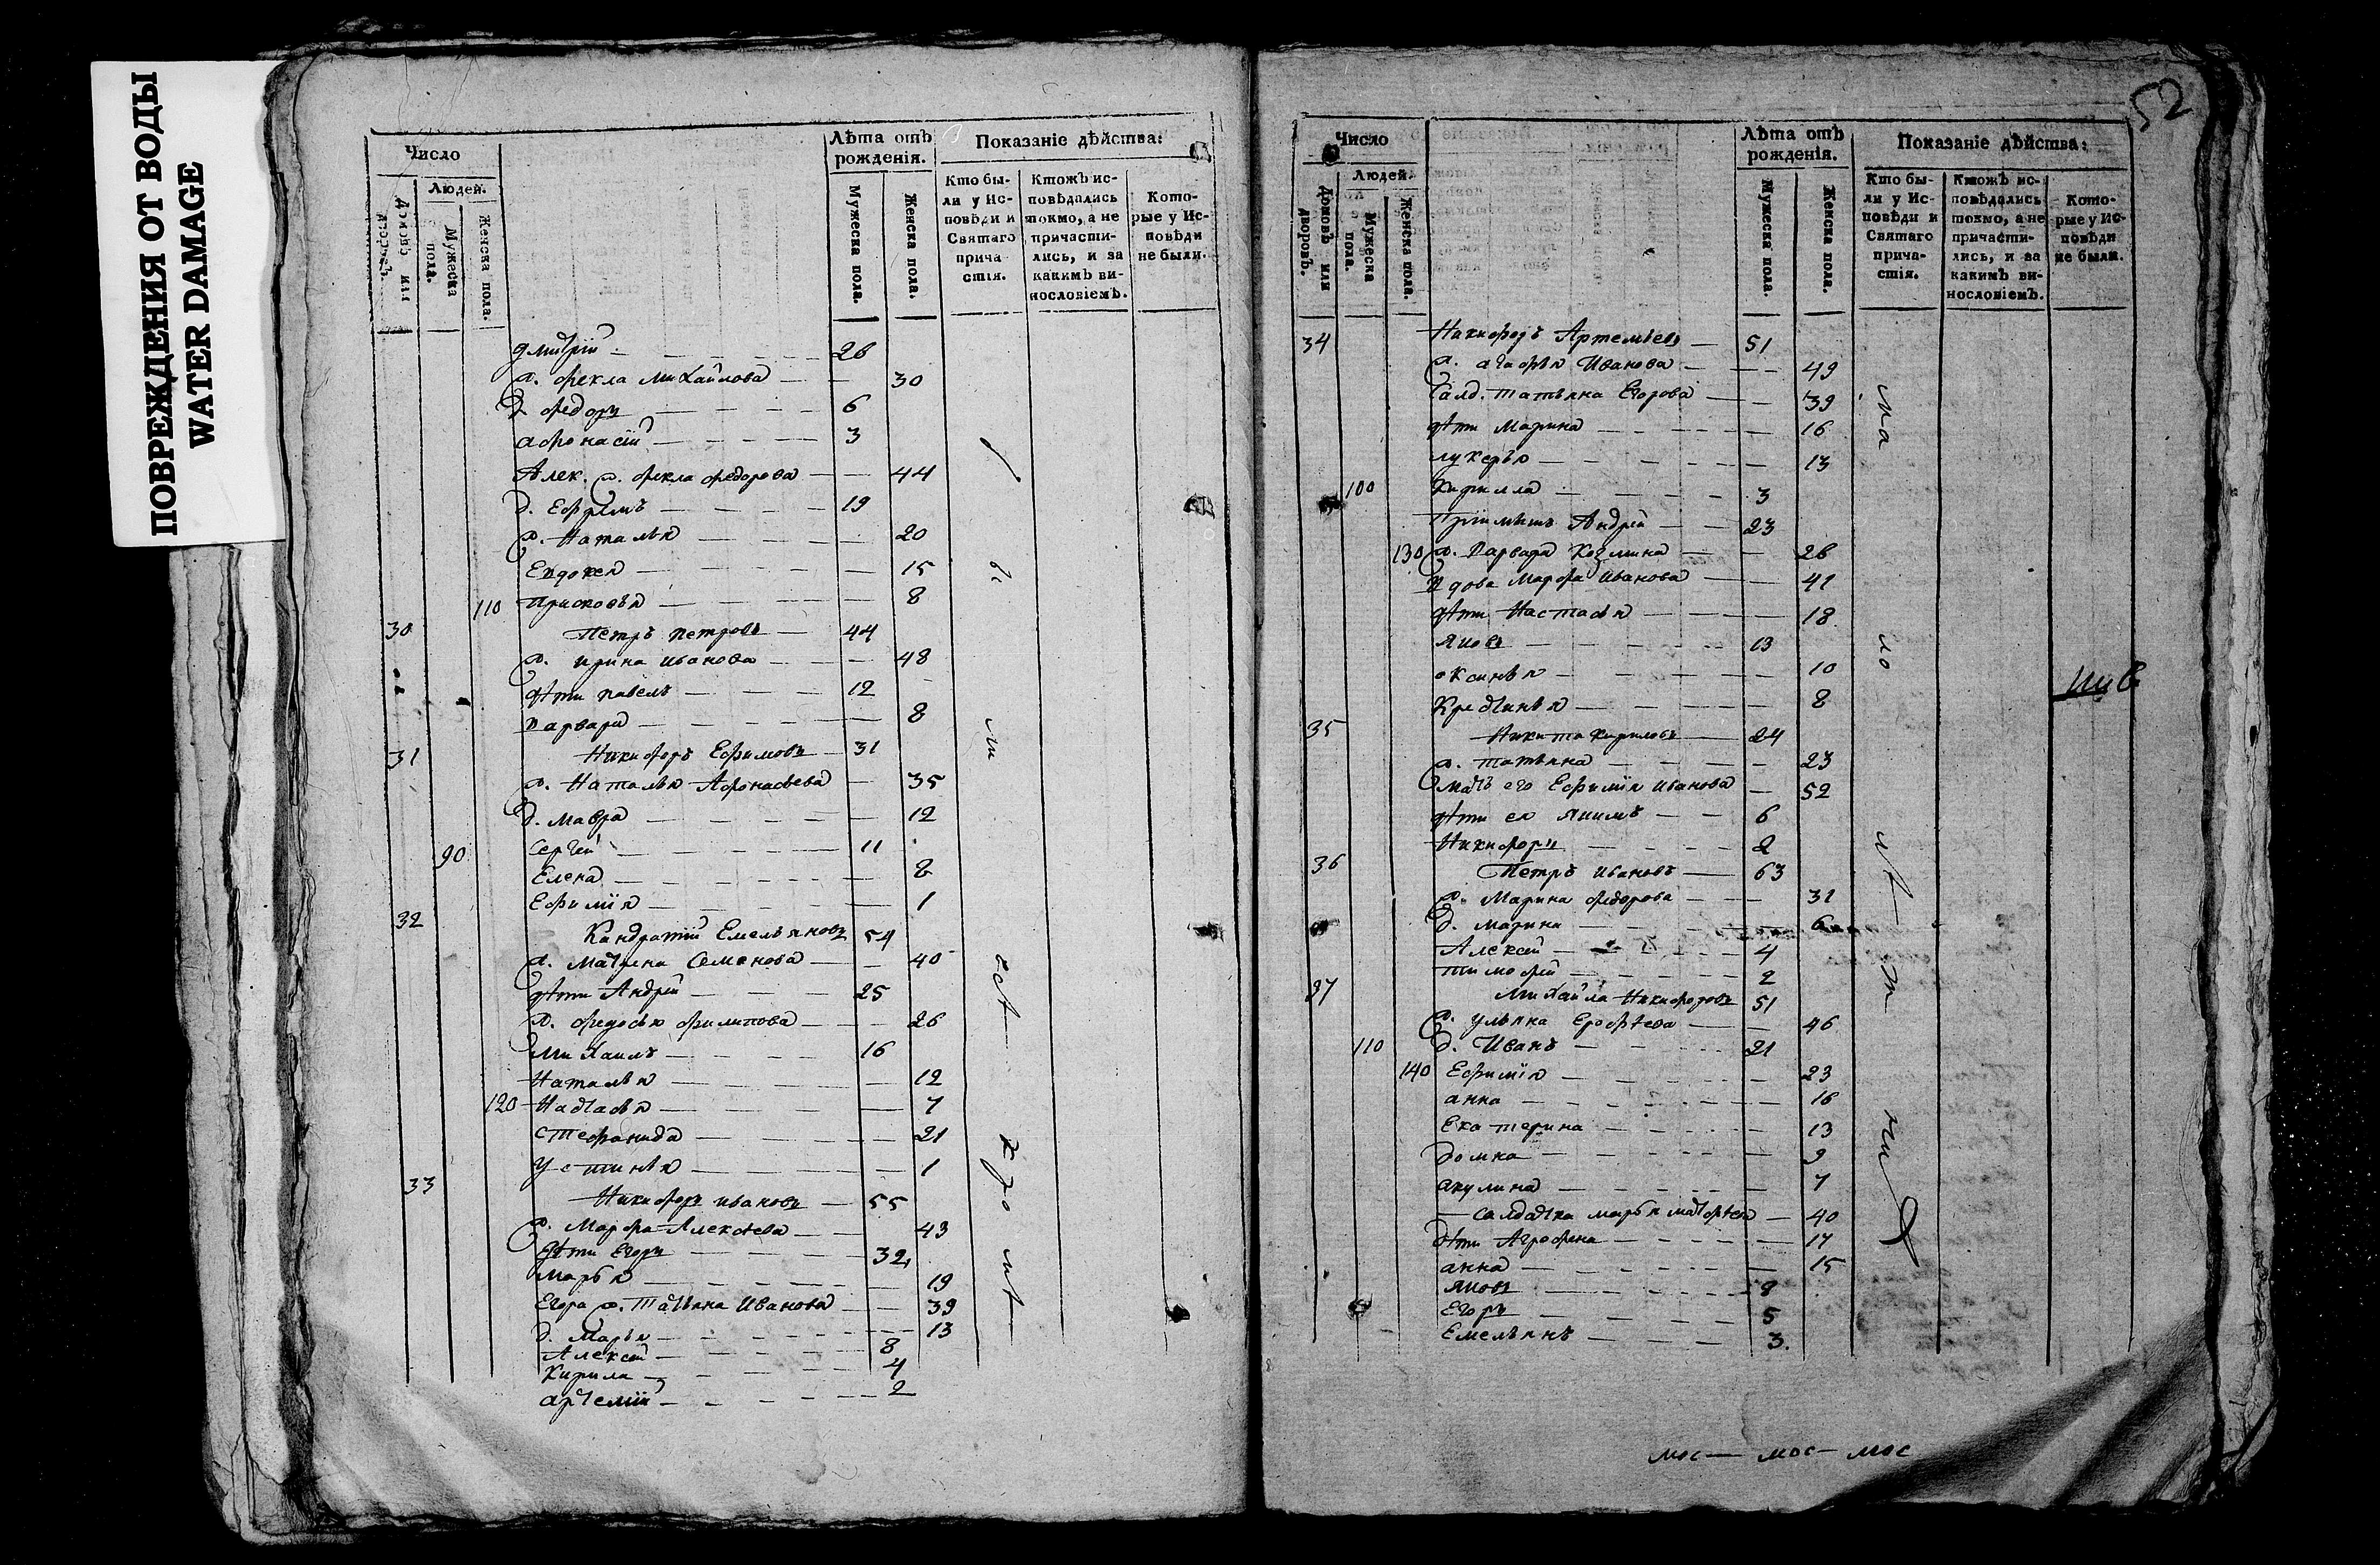 ПОВРЕЖДЕНИЯ ОТ ВОДЫ
WATER DAMAGE
Число
Людей.
Домовъ или дворовъ.
Мужеска пола.
Женска пола.
Лѣта отъ рожденія.
Мужеска пола.
Женска пола.
Показаніе дѣйства:
Кто бы-
ли у Ис-
повѣди и
Святаго
прича
стія.
Ктожъ ис-
повѣдались
токмо, а не
причасти-
лись, и за
какимъ ви-
нословіемъ.
Кото-
рые у Ис-
повѣди
не были.
Дмитрій 26
ж. Фекла Михайлова 30
д. Федоръ 6
Афонасій 3
Алек. ж. Фекла Федорова 44
д. Ефримъ 19
ж. Наталья 20
Евдокея 15
110 Присковья 8
30 Петръ Петровъ 44
ж. Ирина Иванова 48
дѣти Павелъ 12
Варвара 8
31 Никифоръ Ефимовъ 31
ж. Наталья Афонасьева 35
д. Мавра 12
90 Сергей 11
Елена 8
Ефимія 1
32 Кандратій Емельяновъ 54
ж. Матрена Семенова 40
дѣти Андрей 25
ж. Федосья Филипова 26
Михаилъ 16
Наталья 12
120 Настасья 7
Стефанида 21
Устинья 1
33 Никифоръ Ивановъ 55
ж. Марфа Алексѣева 43
дѣти Егоръ 32
Марья 19
Егора ж. Татьяна Иванова 39
д. Марья 13
Алексей 8
Кирила 4
Артемій 2
52
Число
Людей.
Домовъ или дворовъ.
Мужеска пола.
Женска пола.
Лѣта отъ рожденія.
Мужеска пола.
Женска пола.
Показаніе дѣйства:
Кто бы-
ли у Ис-
повѣди и
Святаго
прича-
стія.
Ктожъ ис-
повѣдались
токмо, а не
причасти-
лись, и за
какимъ ви-
нословіемъ.
Кото-
рые у Ис-
повѣди
не были.
34 Никифоръ Артемьевъ 51
ж. Агафья Иванова 49
Салд. Татьяна Егорова 39
дѣти Марина 16
Лукерья 13
100 Кирилла 3
Пріимышъ Андрей 23
130 ж. Варвара Козмина 26
Вдова Марфа Иванова 41
дѣти Настасья 18
Яковъ 13
Оксинья 10
Крестинья 8
35 Никита Кириловъ 24
ж. Татьяна 23
Мать его Ефимія Иванова 52
дѣти ея Якимъ 6
Никифоръ 2
36 Петръ Ивановъ 63
ж. Марина Федорова 31
д. Марина 6
Алексей 4
Тимофей 2
37 Михайла Никифоровъ 51
ж. Ульяна Ерофѣева 46
110 д. Иванъ 21
140 Ефимія 23
Анна 16
Екатерина 13
Домна 9
Акулина 7
Салдатка Марья Матфѣева 40
дѣти Агрофена 17
Анна 15
Яковъ 8
Егоръ 5
Емельянъ 3.
мос — мос — мос